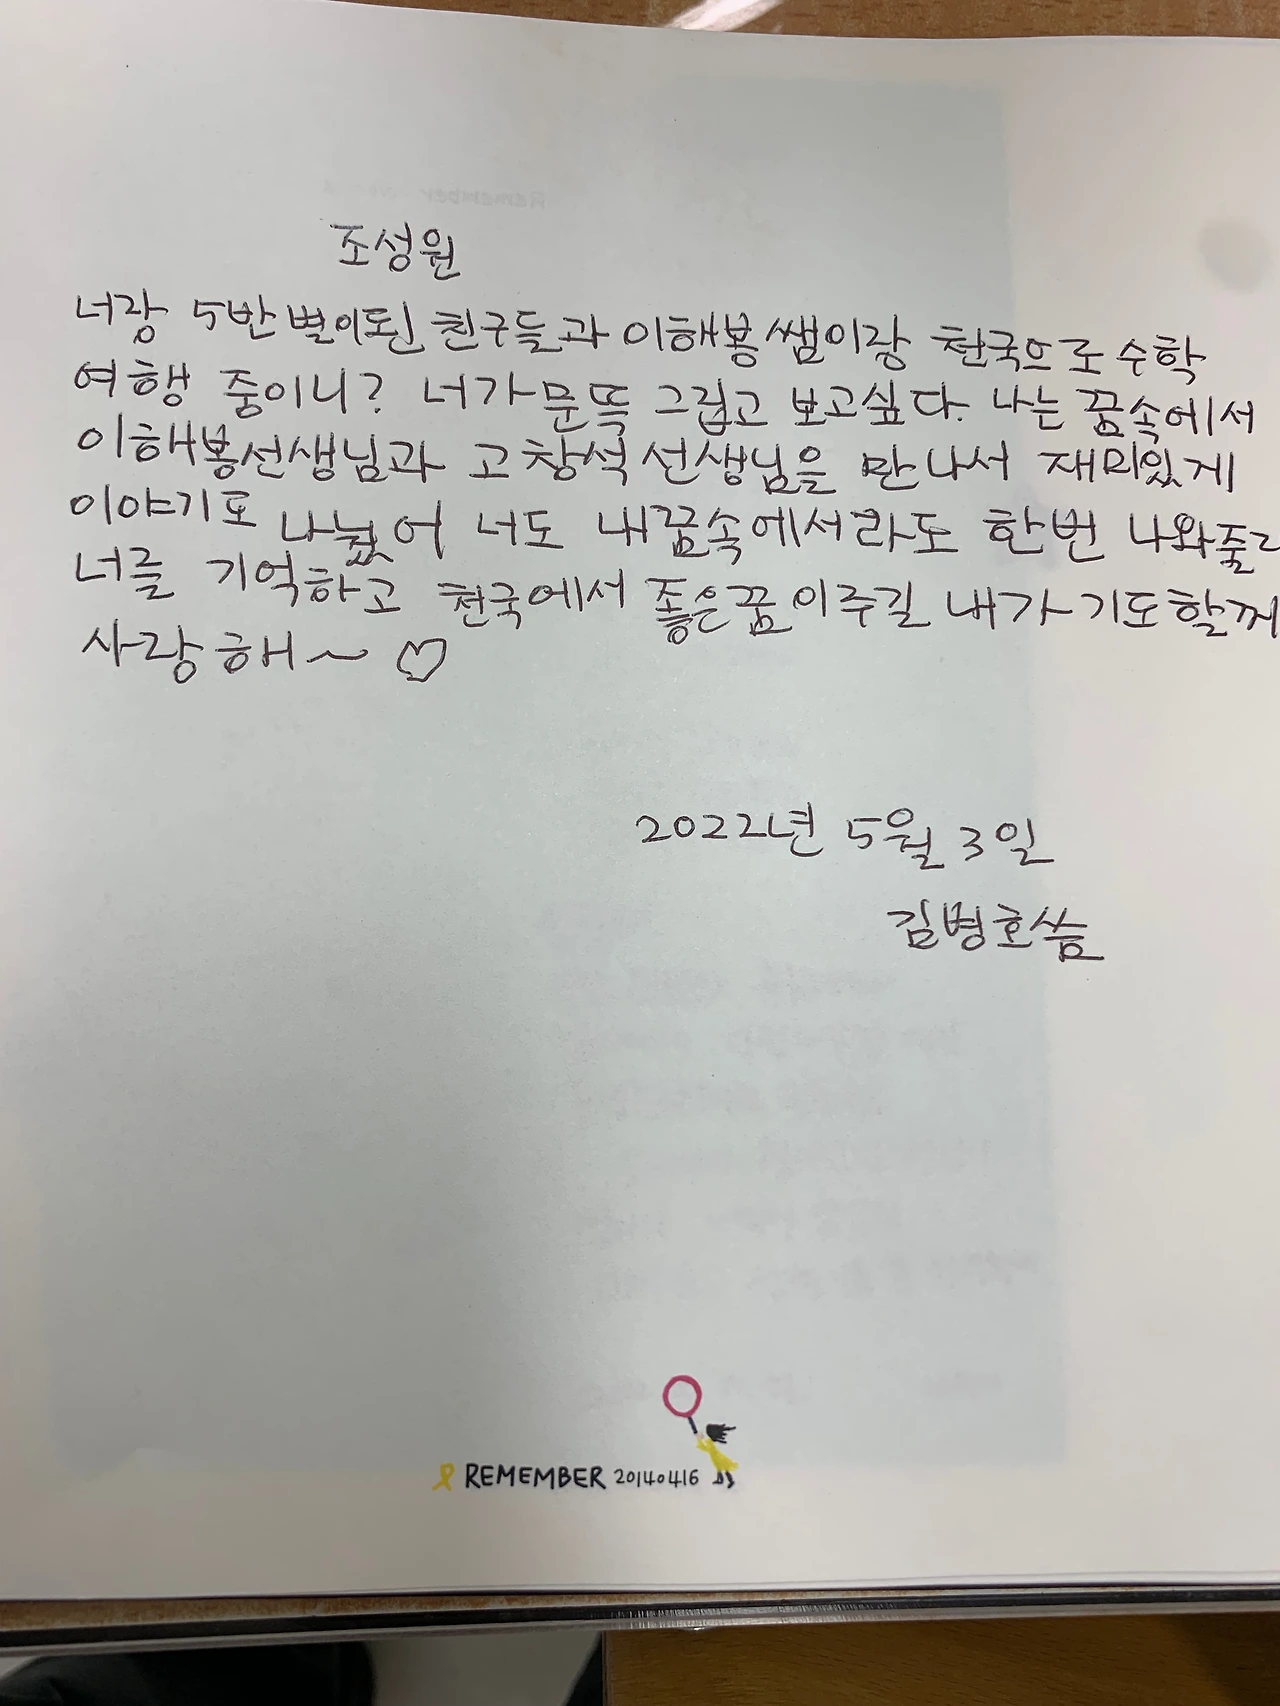 조성원
너랑 5반 별이된 친구들과 이해봉 쌤이랑 천국으로 수학
여행 중이니? 너가 문뜩 그립고 보고싶다. 나는 꿈속에서
이해봉선생님과 고창석 선생님을 만나서 재미있게
이야기도 나눴어 너도 내꿈속에서라도 한번 나와줄래
너를 기억하고 천국에서 좋은꿈 이루길 내가 기도할께
사랑해~ ♡
2022년 5월 3일
김병호씀
REMEMBER 20140416